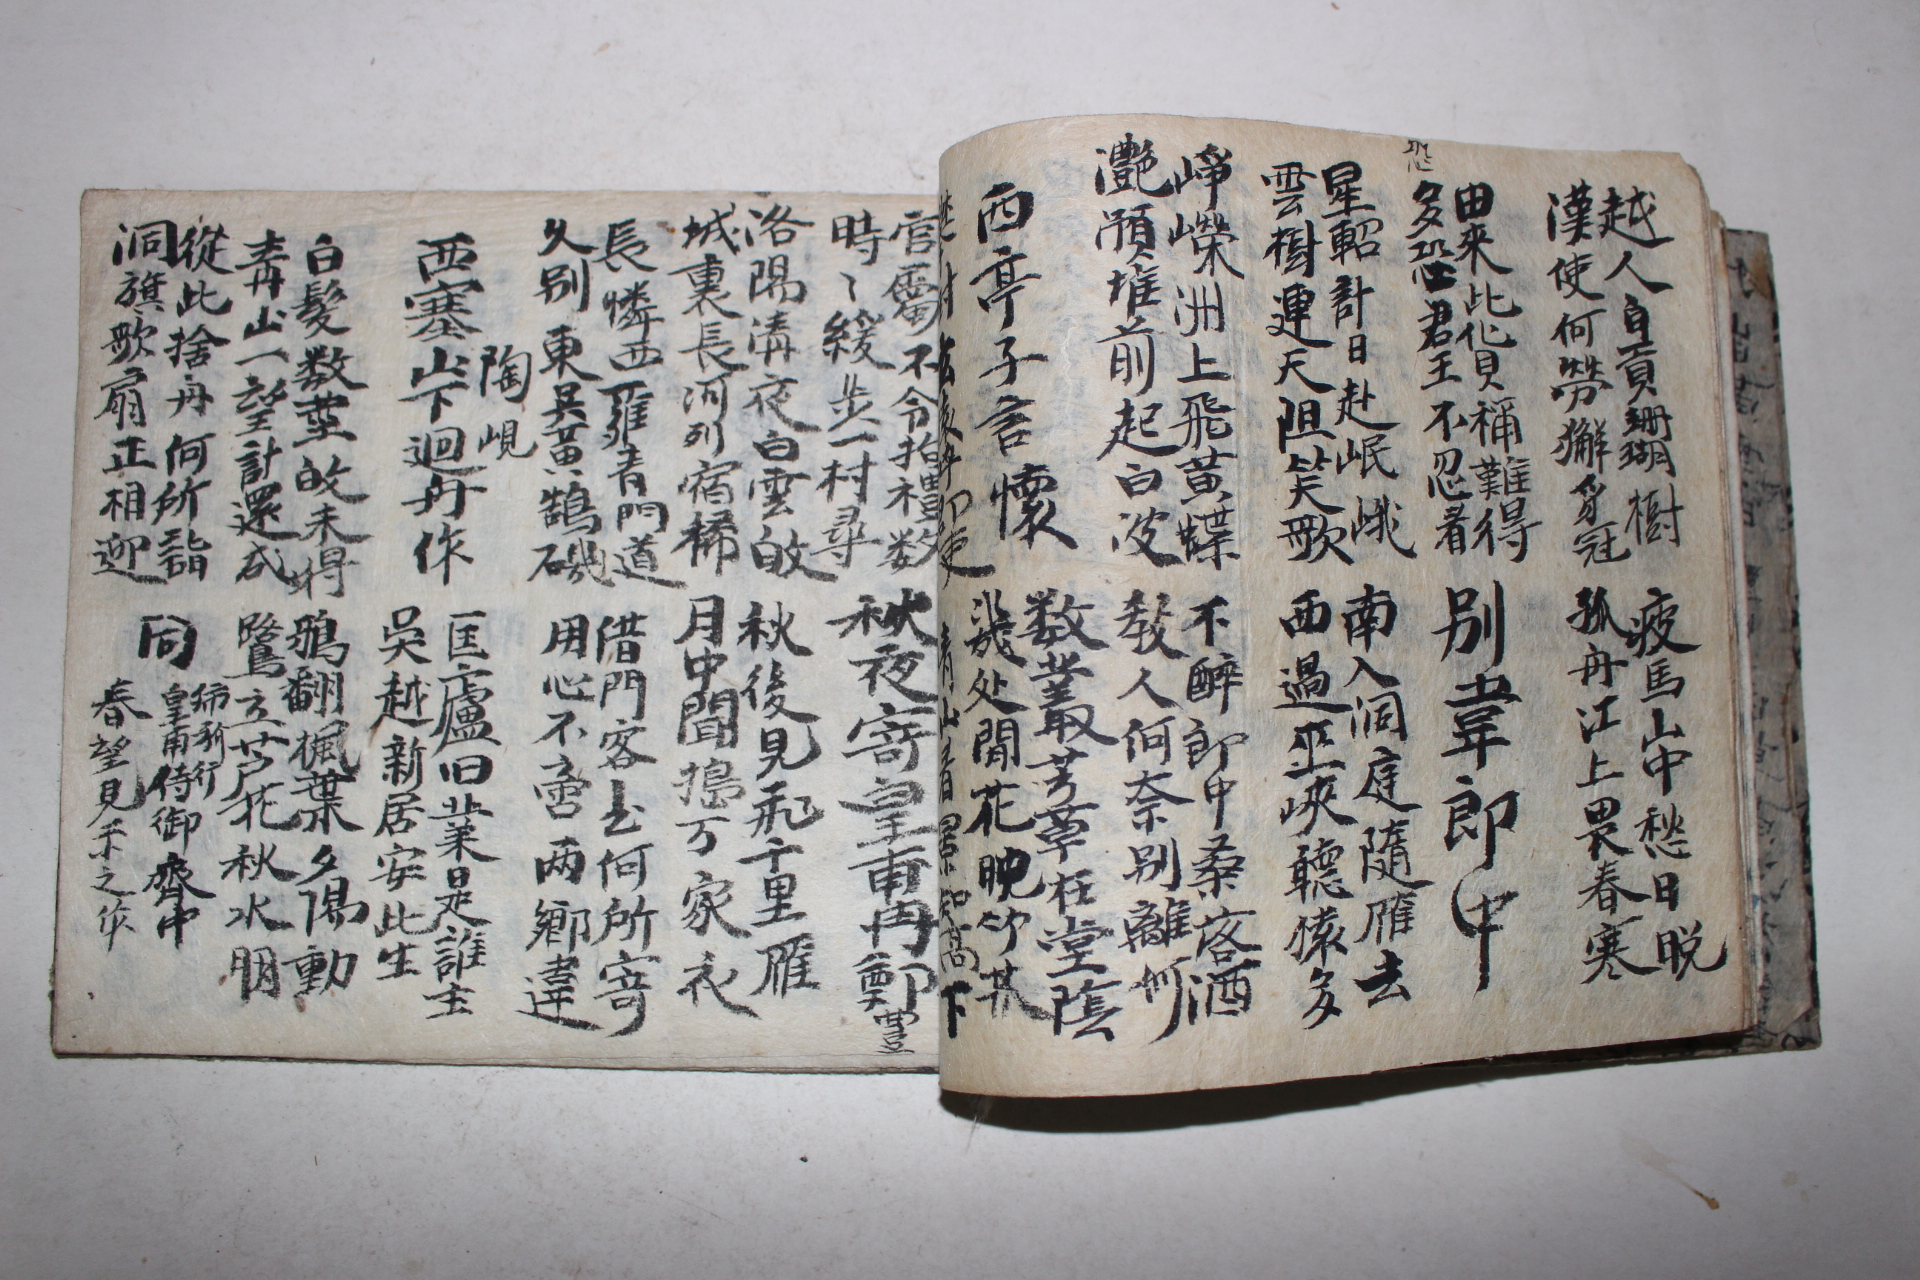 越人自貢珊瑚樹
漢使何勞獬豸冠
疲馬山中愁日晚
孤舟江上畏春寒
由來此貨稱難得
多恐君王不忍看
別韋郎中
星軺計日赴岷峨
雲樹連天阻笑歌
南入洞庭隨雁去
西過巫峽聽猿多
崢嶸洲上飛黃蝶
灩澦堆前起白波
不醉郎中桑落酒
教人何奈別離何
西亭子言懷
数叢芳草在堂陰
幾处閒花映竹林
官屬不令拘禮数
時〻緩步一村尋
秋夜寄皇甫冉鄭豊
洛陽清夜白雲皈
城裏長河列宿稀
秋後見飛千里雁
月中聞搗万家衣
長憐西雍青門道
久別東吳黃鵠磯
借問客书何所寄
用心不啻两鄉違
西塞山下迴舟作
陶峴
匡廬旧業是誰主
吳越新居安此生
白髮数莖皈未得
青山一望計還成
鴉翻楓葉夕陽動
鷺立芦花秋水明
從此捨舟何所詣
酒旗歌扇正相迎
同
皇甫侍御齋中
春望見示之作